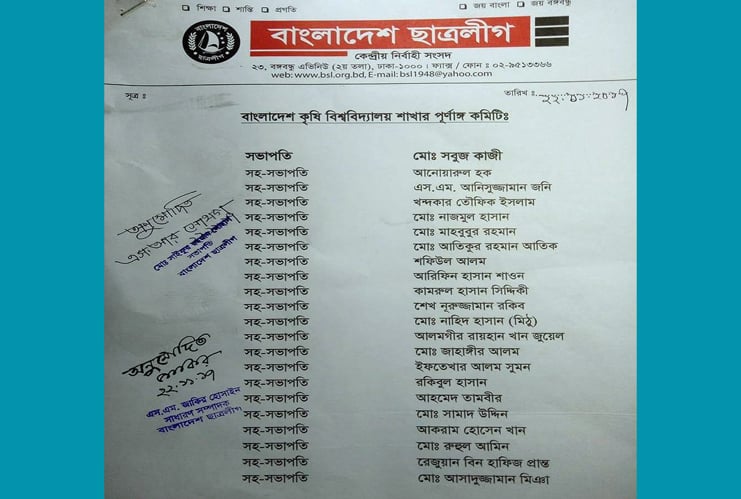 □ শিক্ষা □ শান্তি □ প্রগতি
□ জয় বাংলা □ জয় বঙ্গবন্ধু
বাংলাদেশ
ছাত্রলীগ
বাংলাদেশ ছাত্রলীগ
কেন্দ্রীয় নির্বাহী সংসদ
২৩, বঙ্গবন্ধু এভিনিউ (২য় তলা), ঢাকা-১০০০ । ফ্যাক্স / ফোন ঃ ০২-৯৫১৩৩৬৬
web: www.bsl.org.bd, E-mail: bsl1948@yahoo.com
সূত্র ঃ
তারিখ ঃ
বাংলাদেশ কৃষি বিশ্ববিদ্যালয় শাখার পূর্ণাঙ্গ কমিটিঃ
সভাপতি মোঃ সবুজ কাজী
সহ-সভাপতি আনোয়ারুল হক
সহ-সভাপতি এস.এম. আনিসুজ্জামান জনি
সহ-সভাপতি খন্দকার তৌফিক ইসলাম
সহ-সভাপতি মোঃ নাজমুল হাসান
সহ-সভাপতি মোঃ মাহবুবুর রহমান
সহ-সভাপতি মোঃ আতিকুর রহমান আতিক
সহ-সভাপতি শফিউল আলম
সহ-সভাপতি আরিফিন হাসান শাওন
সহ-সভাপতি কামরুল হাসান সিদ্দিকী
সহ-সভাপতি শেখ নূরুজ্জামান রকিব
সহ-সভাপতি মোঃ নাহিদ হাসান (মিঠু)
সহ-সভাপতি আলমগীর রায়হান খান জুয়েল
সহ-সভাপতি মোঃ জাহাঙ্গীর আলম
সহ-সভাপতি ইফতেখার আলম সুমন
সহ-সভাপতি রকিবুল হাসান
সহ-সভাপতি আহমেদ তামবীর
সহ-সভাপতি মোঃ সামাদ উদ্দিন
সহ-সভাপতি আকরাম হোসেন খান
সহ-সভাপতি মোঃ রুহুল আমিন
সহ-সভাপতি রেজুয়ান বিন হাফিজ প্রান্ত
সহ-সভাপতি মোঃ আসাদুজ্জামান মিঞা
অনুমোদিত
মোঃ সাইফুর
সভাপতি
বাংলাদেশ ছাত্রলীগ
অনুমোদিত
জাকির
২২.১১.১৭
এস.এম. জাকির হোসাইন
সাধারণ সম্পাদক
বাংলাদেশ ছাত্রলীগ